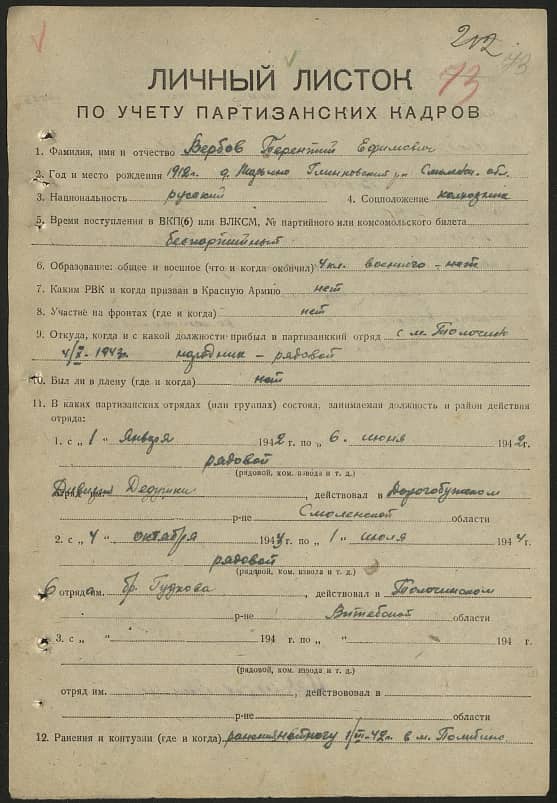 212
73
73
ЛИЧНЫЙ ЛИСТОК
ПО УЧЕТУ ПАРТИЗАНСКИХ КАДРОВ
1. Фамилия, имя и отчество Вербов Терентий Ефимович
2. Год и место рождения 1912г. д. Глинковский р-н Смоленск. обл.
3. Национальность русский 4. Соцположение колхозник
5. Время поступления в ВКП(б) или ВЛКСМ, № партийного или комсомольского билета
беспартийный
6. Образование: общее и военное (что и когда окончил) 4 кл. военного - нет
7. Каким РВК и когда призван в Красную Армию нет
8. Участие на фронтах (где и когда) нет
9. Откуда, когда и с какой должности прибыл в партизанкий отряд с м. Толочин
4/X-1943г. - рядовой
10. Был ли в плену (где и когда) нет
11. В каких партизанских отрядах (или группах) состоял, занимаемая должность и район действия
отряда:
1. с „ 1 " января 1942 г. по „ 6 . июня 1942 г.
рядовой
(рядовой, ком. взвода и т. д.)
Дивизия Дедушки , действовал в Дорогобужском
р-не Смоленской области
2. с „ 4 " октября 1943 г. по „ 1 " июля 1944 г.
рядовой
(рядовой, ком. взвода и т. д.)
6 отряд им. бр. Гудкова , действовал в Толочинском
р-не Витебской области
3. с „ " 194 г. по „ " 194 г.
(рядовой, ком. взвода и т. д.)
отряд им. , действововал в
р-не области
12. Ранения и контузии (где и когда) ранения ногу 1/III-42г. в м.